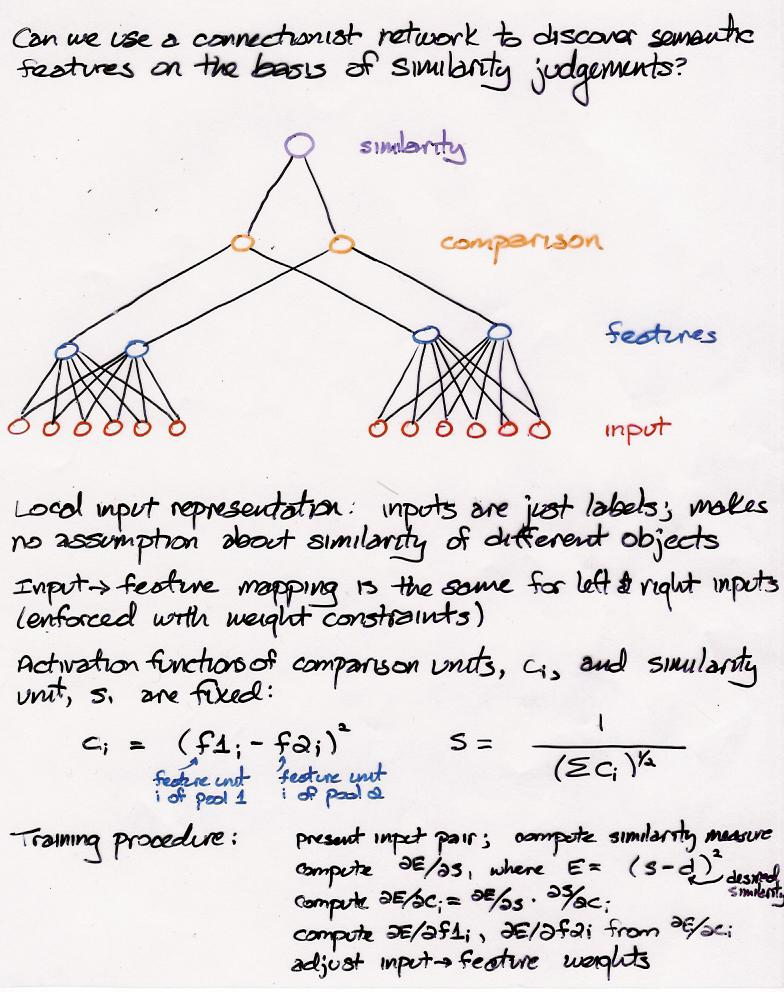 Can we use a connectionist network to discover semantic
features on the basis of similarity judgements?
similarity
comparison
features
input
Local input representation: inputs are just labels; makes
no assumption about similarity of different objects
Input → feature mapping is the same for left & right inputs
(enforced with weight constraints)
Activation functions of comparison units, cᵢ, and similarity
unit, s, are fixed:
cᵢ = (f1ᵢ - f2ᵢ)²
feature unit
i of pool 1
feature unit
i of pool 2
S = 1 / (Σ cᵢ)^½
Training procedure:
present input pair; compute similarity measure
compute ∂E/∂s, where E = (s-d)²
desired
similarity
compute ∂E/∂cᵢ = ∂E/∂s · ∂s/∂cᵢ
compute ∂E/∂f1ᵢ, ∂E/∂f2ᵢ from ∂E/∂cᵢ
adjust input → feature weights